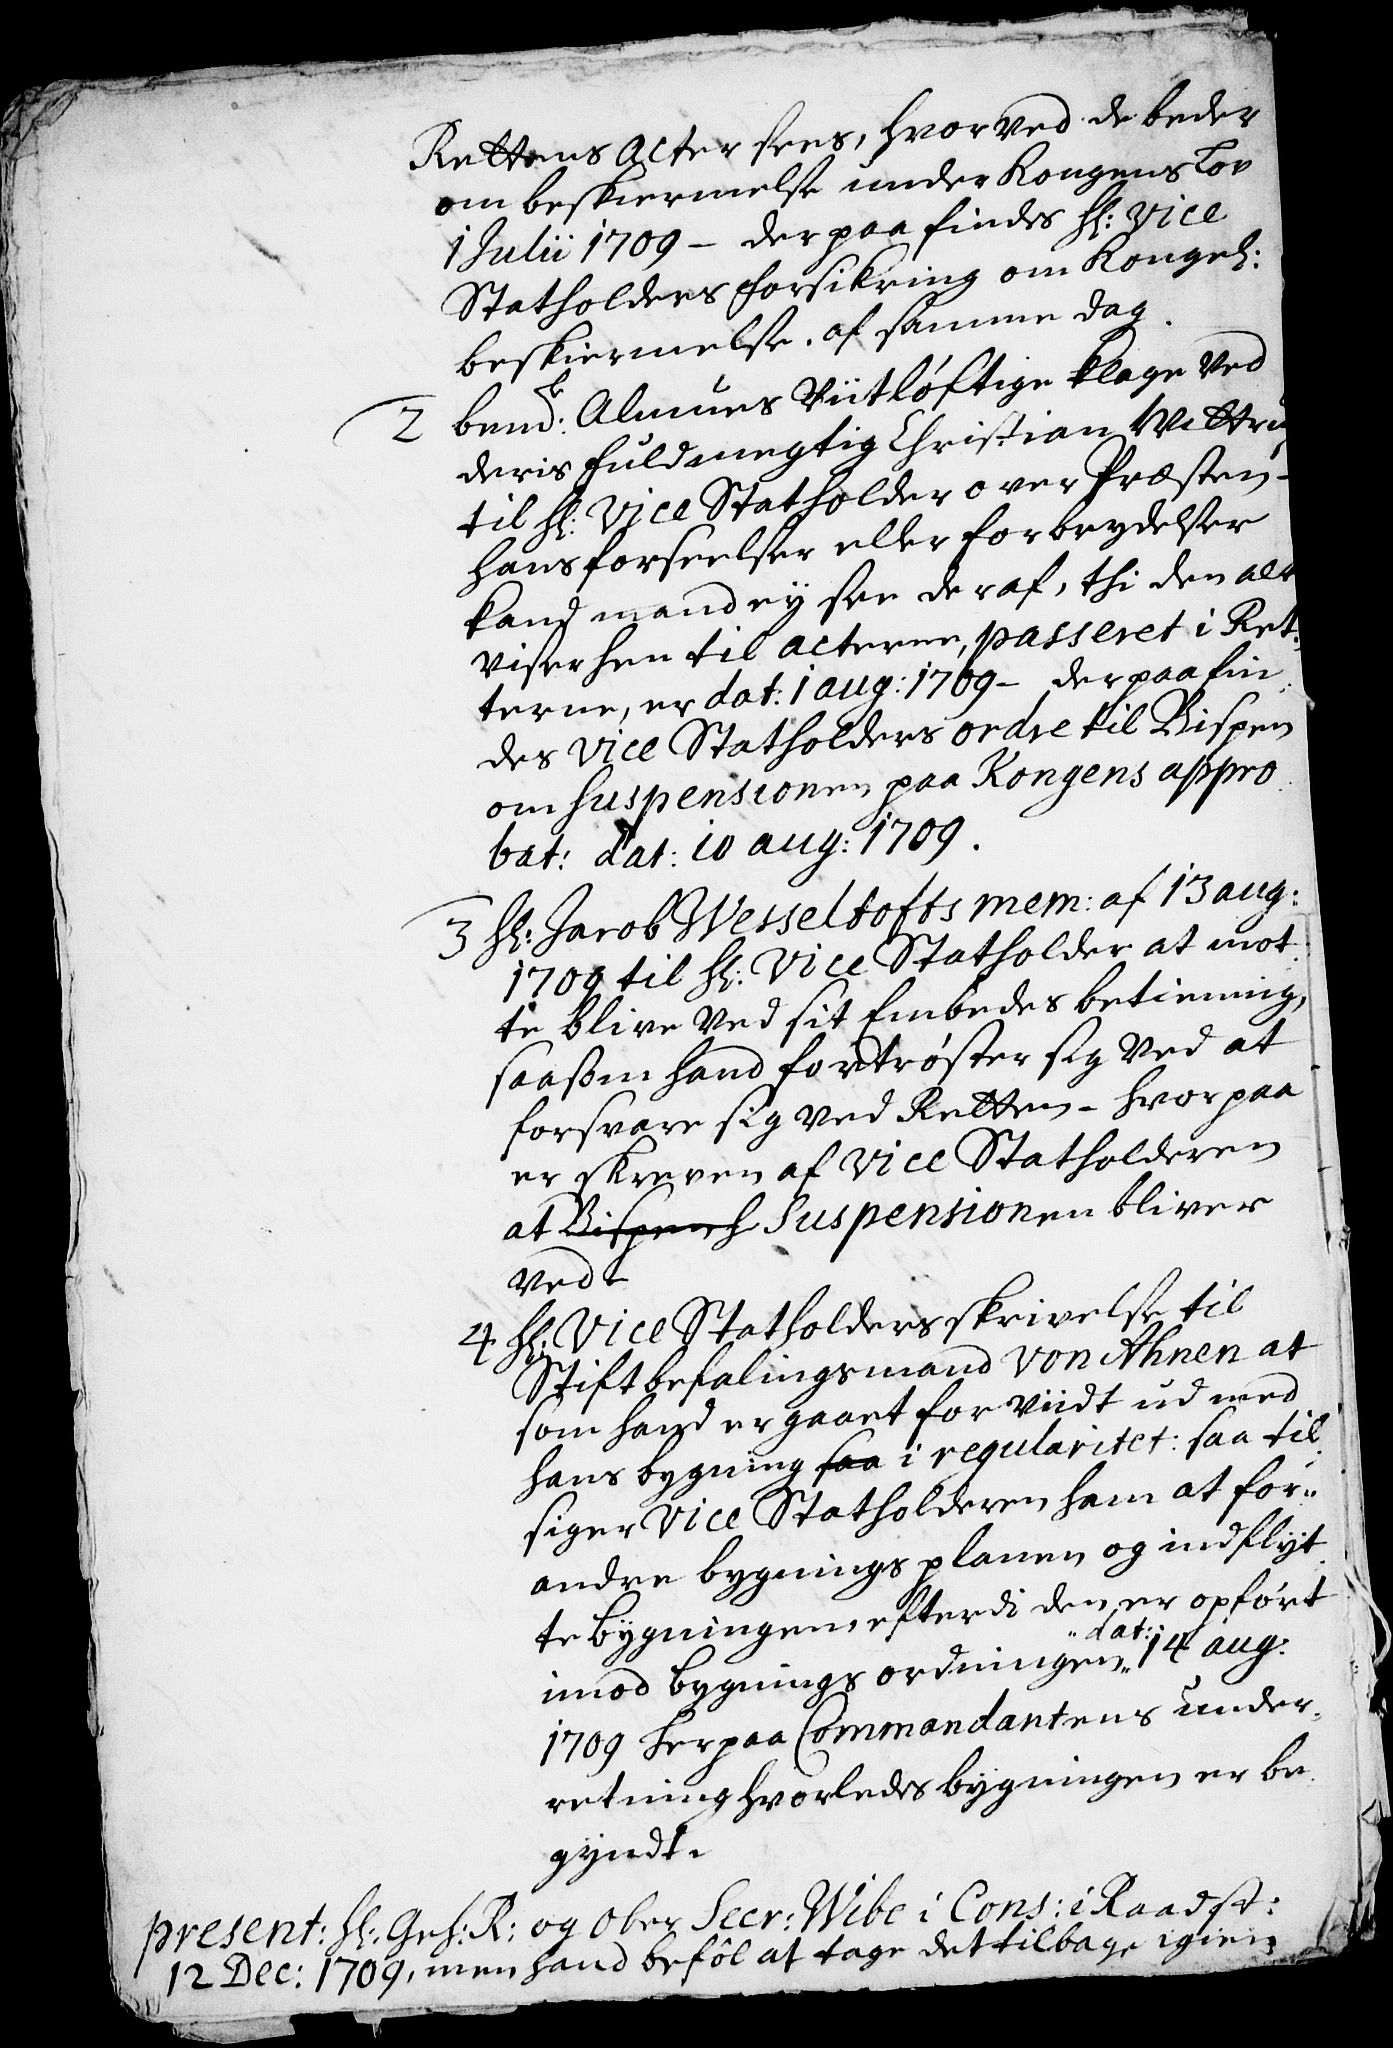 Rettens Acter sees, hvorved de beder
om beskiermelse under Kongens Lov
1 Julii 1709 – der paa findes hl: Vice
Statholders forsikring om Kongel:
beskiermelse. af samme dag.
2 bemte: Almues Viitløftige klage Ved
deris fuldmegtig Christian
til hl: Vice Statholder over Præsten –
hans forseelser eller forbrydelser
kand mand ey see deraf, thi den alt
viser hen til acterne, passeret i Ret-
terne, er dat: 1 aug: 1709 – der paa fin-
des Vice Statholders ordre til Bispen
om suspensionen paa Kongens appro
bat: dat: 10 aug: 1709.
3 hl: Jacob Wesseltofts mem: af 13 aug:
1709 til hl: Vice Statholder at mot
te blive Ved sit Embedes betiening,
saasom hand fortrøster sig Ved at
forsvare sig ved Retten – hvor paa
er skreven af Vice Statholderen
at Bispens Suspensionen bliver
ved
4 hl: Vice Statholders skrivelse til
Stiftbefalingsmand von Ahnen at
som hand er gaaet for viidt ud med
hans bygning saa i regularitet: saa til
siger Vice Statholderen ham at for-
andre bygnings planen og indflyt
te bygningen efterdi den er opført
imod bygnings ordningen dat: 14 aug:
1709 herpaa Commandantens under-
retning hvorledes bygningen er be
gyndt.
present: hl: Geh: R: og Ober Secr: Wibe i Cons: i Raadst:
12 Dec: 1709, men hand befôl at tage det tilbage igien